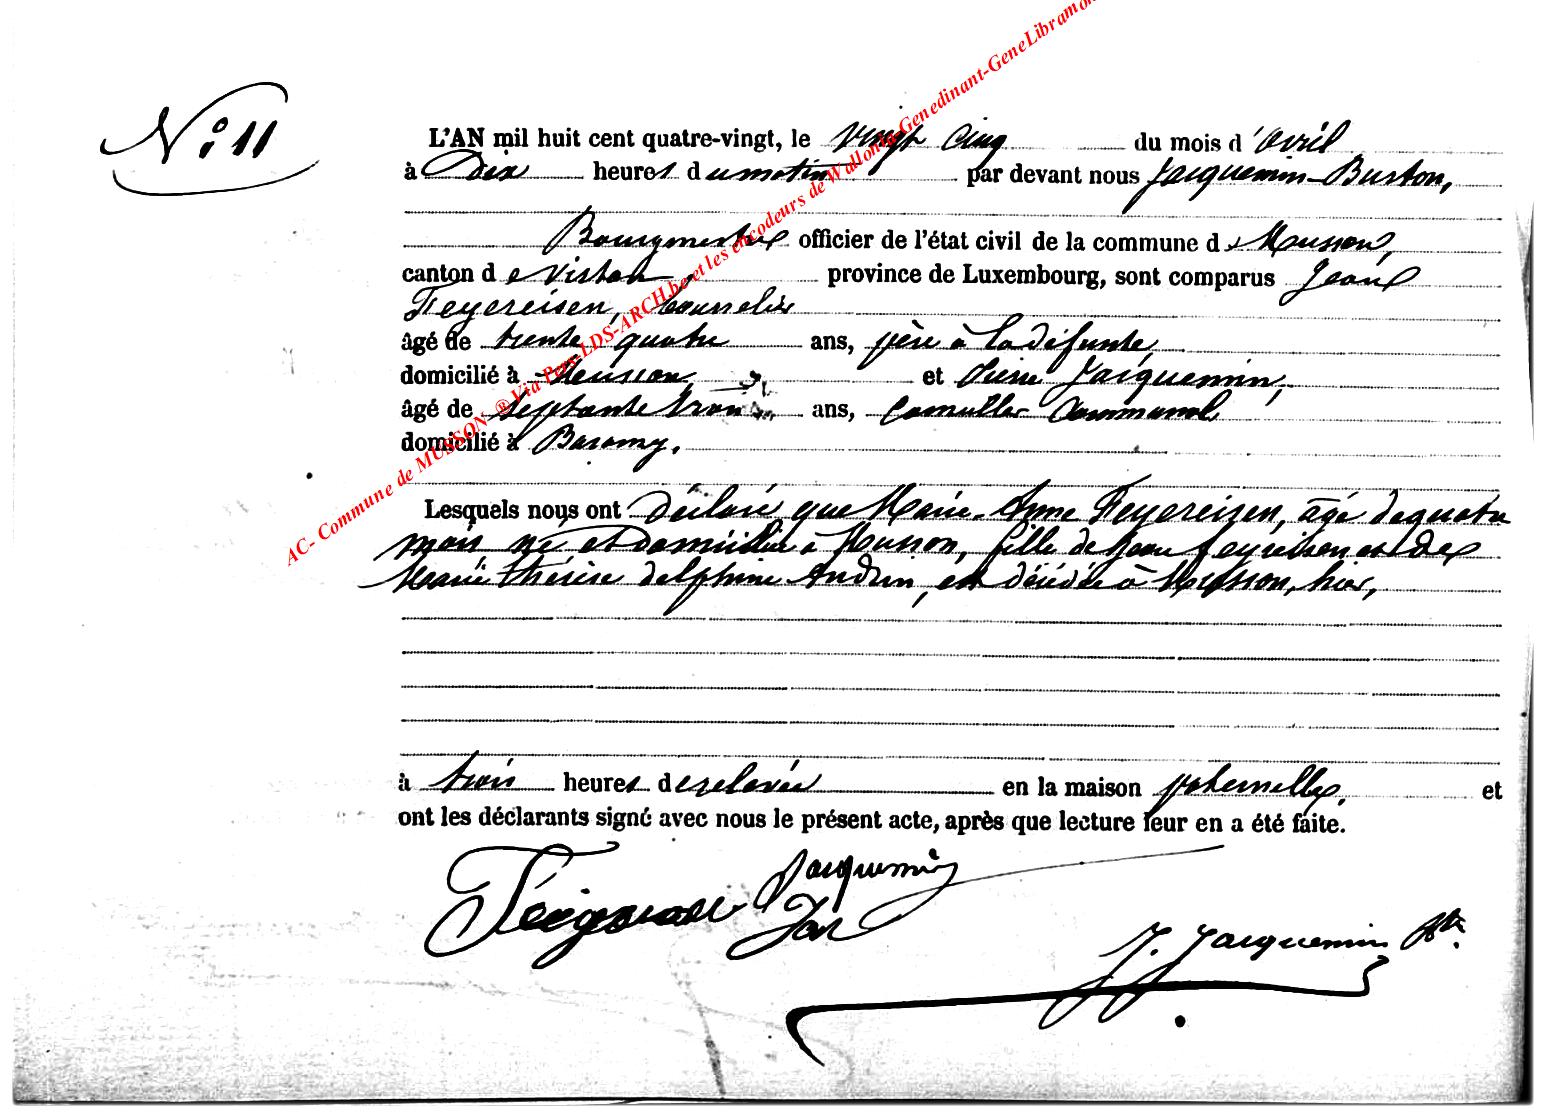 N° 11
L'AN mil huit cent quatre-vingt, le vingt cinq du mois d'avril
à Dix heures du matin par devant nous Jacquemin-Burton,
Bourgmestre officier de l'état civil de la commune de Musson,
canton de Virton province de Luxembourg, sont comparus Jean
Feyereisen,
âgé de trente quatre ans, père à la défunte,
domicilié à Musson, et Pierre Jacquemin,
âgé de septante trois ans, Conseiller Communal
domicilié à Baranzy.
Lesquels nous ont déclaré que Marie-Anne Feyereisen, âgé de quatre
mois, né et domiciliée à Musson, fille de Jean Feyreisen et de
Marie thérèse delphine, est décédée à Musson, hier,
à trois heures de relevée en la maison paternelle, et
ont les déclarants signé avec nous le présent acte, après que lecture leur en a été faite.
Jacquemin
J. Jacquemin
AC- Commune de MUSSON ® Via Pers-LDS-ARCH.be et les encodeurs de Wallonia-Genedinant-GeneLibramon